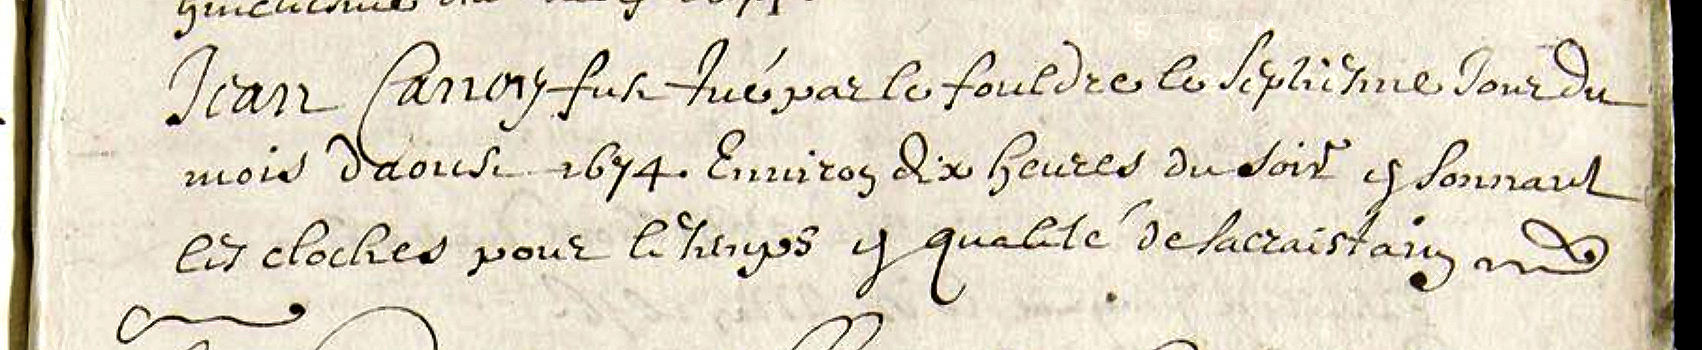 Jean Canon fut tué par le fouldre le septiesme Jour du
mois daoust 1674. Environ dix heures du soir en sonnant
les cloches pour le temps en qualité de sacraistain